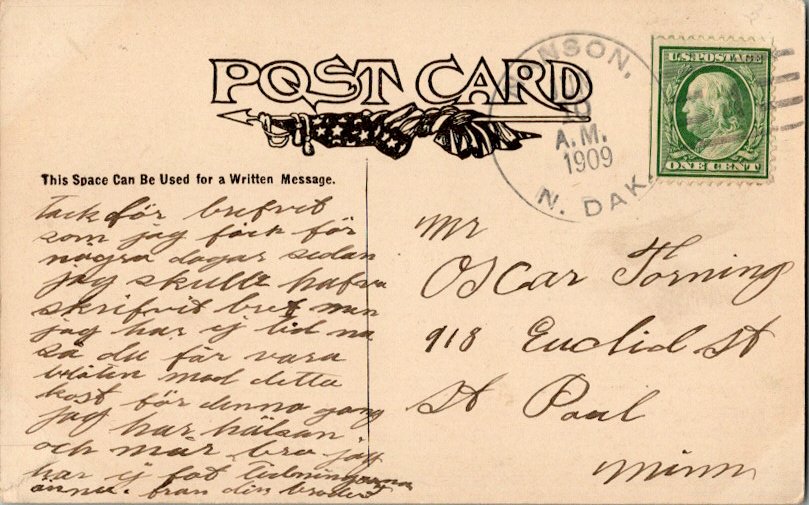 POST CARD
NSON,
10
A.M.
1909
N. DAK.
U.S. POSTAGE
ONE CENT
This Space Can Be Used for a Written Message.
Tack för brefvit
som jag fäck för
nogra dagar sedan
jag skulle hafva
skrifvit bref men
jag har ej tid na
så du får vara
belåten med detta
kost för denna gang
jag har hälsan
och mår bra jag
har ej fåt tidningarna
ännu. från din broder
Mr
Oscar Torning
918 Euclid St
St Paul
Minn